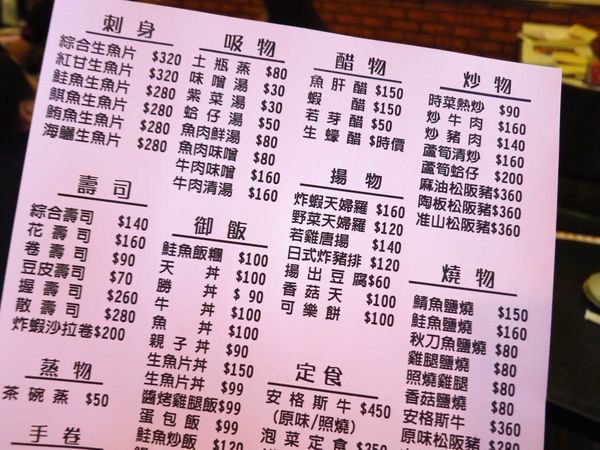 刺身
綜合生魚片 $320
紅甘生魚片 $320
鮭魚生魚片 $280
鯕魚生魚片 $280
鮪魚生魚片 $280
海鱺生魚片 $280
壽司
綜合壽司 $140
花壽司 $160
卷壽司 $90
豆皮壽司 $70
握壽司 $260
散壽司 $280
炸蝦沙拉卷 $200
蒸物
茶碗蒸 $50
手卷
吸物
土瓶蒸 $80
味噌湯 $30
紫菜湯 $30
蛤仔湯 $50
魚肉鮮湯 $80
魚肉味噌 $80
牛肉味噌 $160
牛肉清湯 $160
御飯
鮭魚飯糰 $100
天丼 $100
勝丼 $90
牛丼 $100
魚丼 $100
親子丼 $90
生魚片丼 $150
生魚片丼 $99
醬烤雞腿飯 $99
蛋包飯 $99
鮭魚炒飯 $120
醋物
魚肝醋 $150
蝦醋 $150
若芽醋 $50
生蠔醋 $時價
揚物
炸蝦天婦羅 $160
野菜天婦羅 $120
若雞唐揚 $140
日式炸豬排 $120
揚出豆腐 $60
香菇天 $100
可樂餅 $100
定食
安格斯牛 $450
(原味/照燒)
泡菜定食 $250
炒物
時菜熱炒 $90
炒牛肉 $160
炒豬肉 $140
蘆筍清炒 $160
蘆筍蛤仔 $200
麻油松阪豬 $360
陶板松阪豬 $360
淮山松阪豬 $360
燒物
鯖魚鹽燒 $150
鮭魚鹽燒 $160
秋刀魚鹽燒 $80
雞腿鹽燒 $80
照燒雞腿 $80
香菇鹽燒 $80
安格斯牛 $360
原味松阪豬 $280